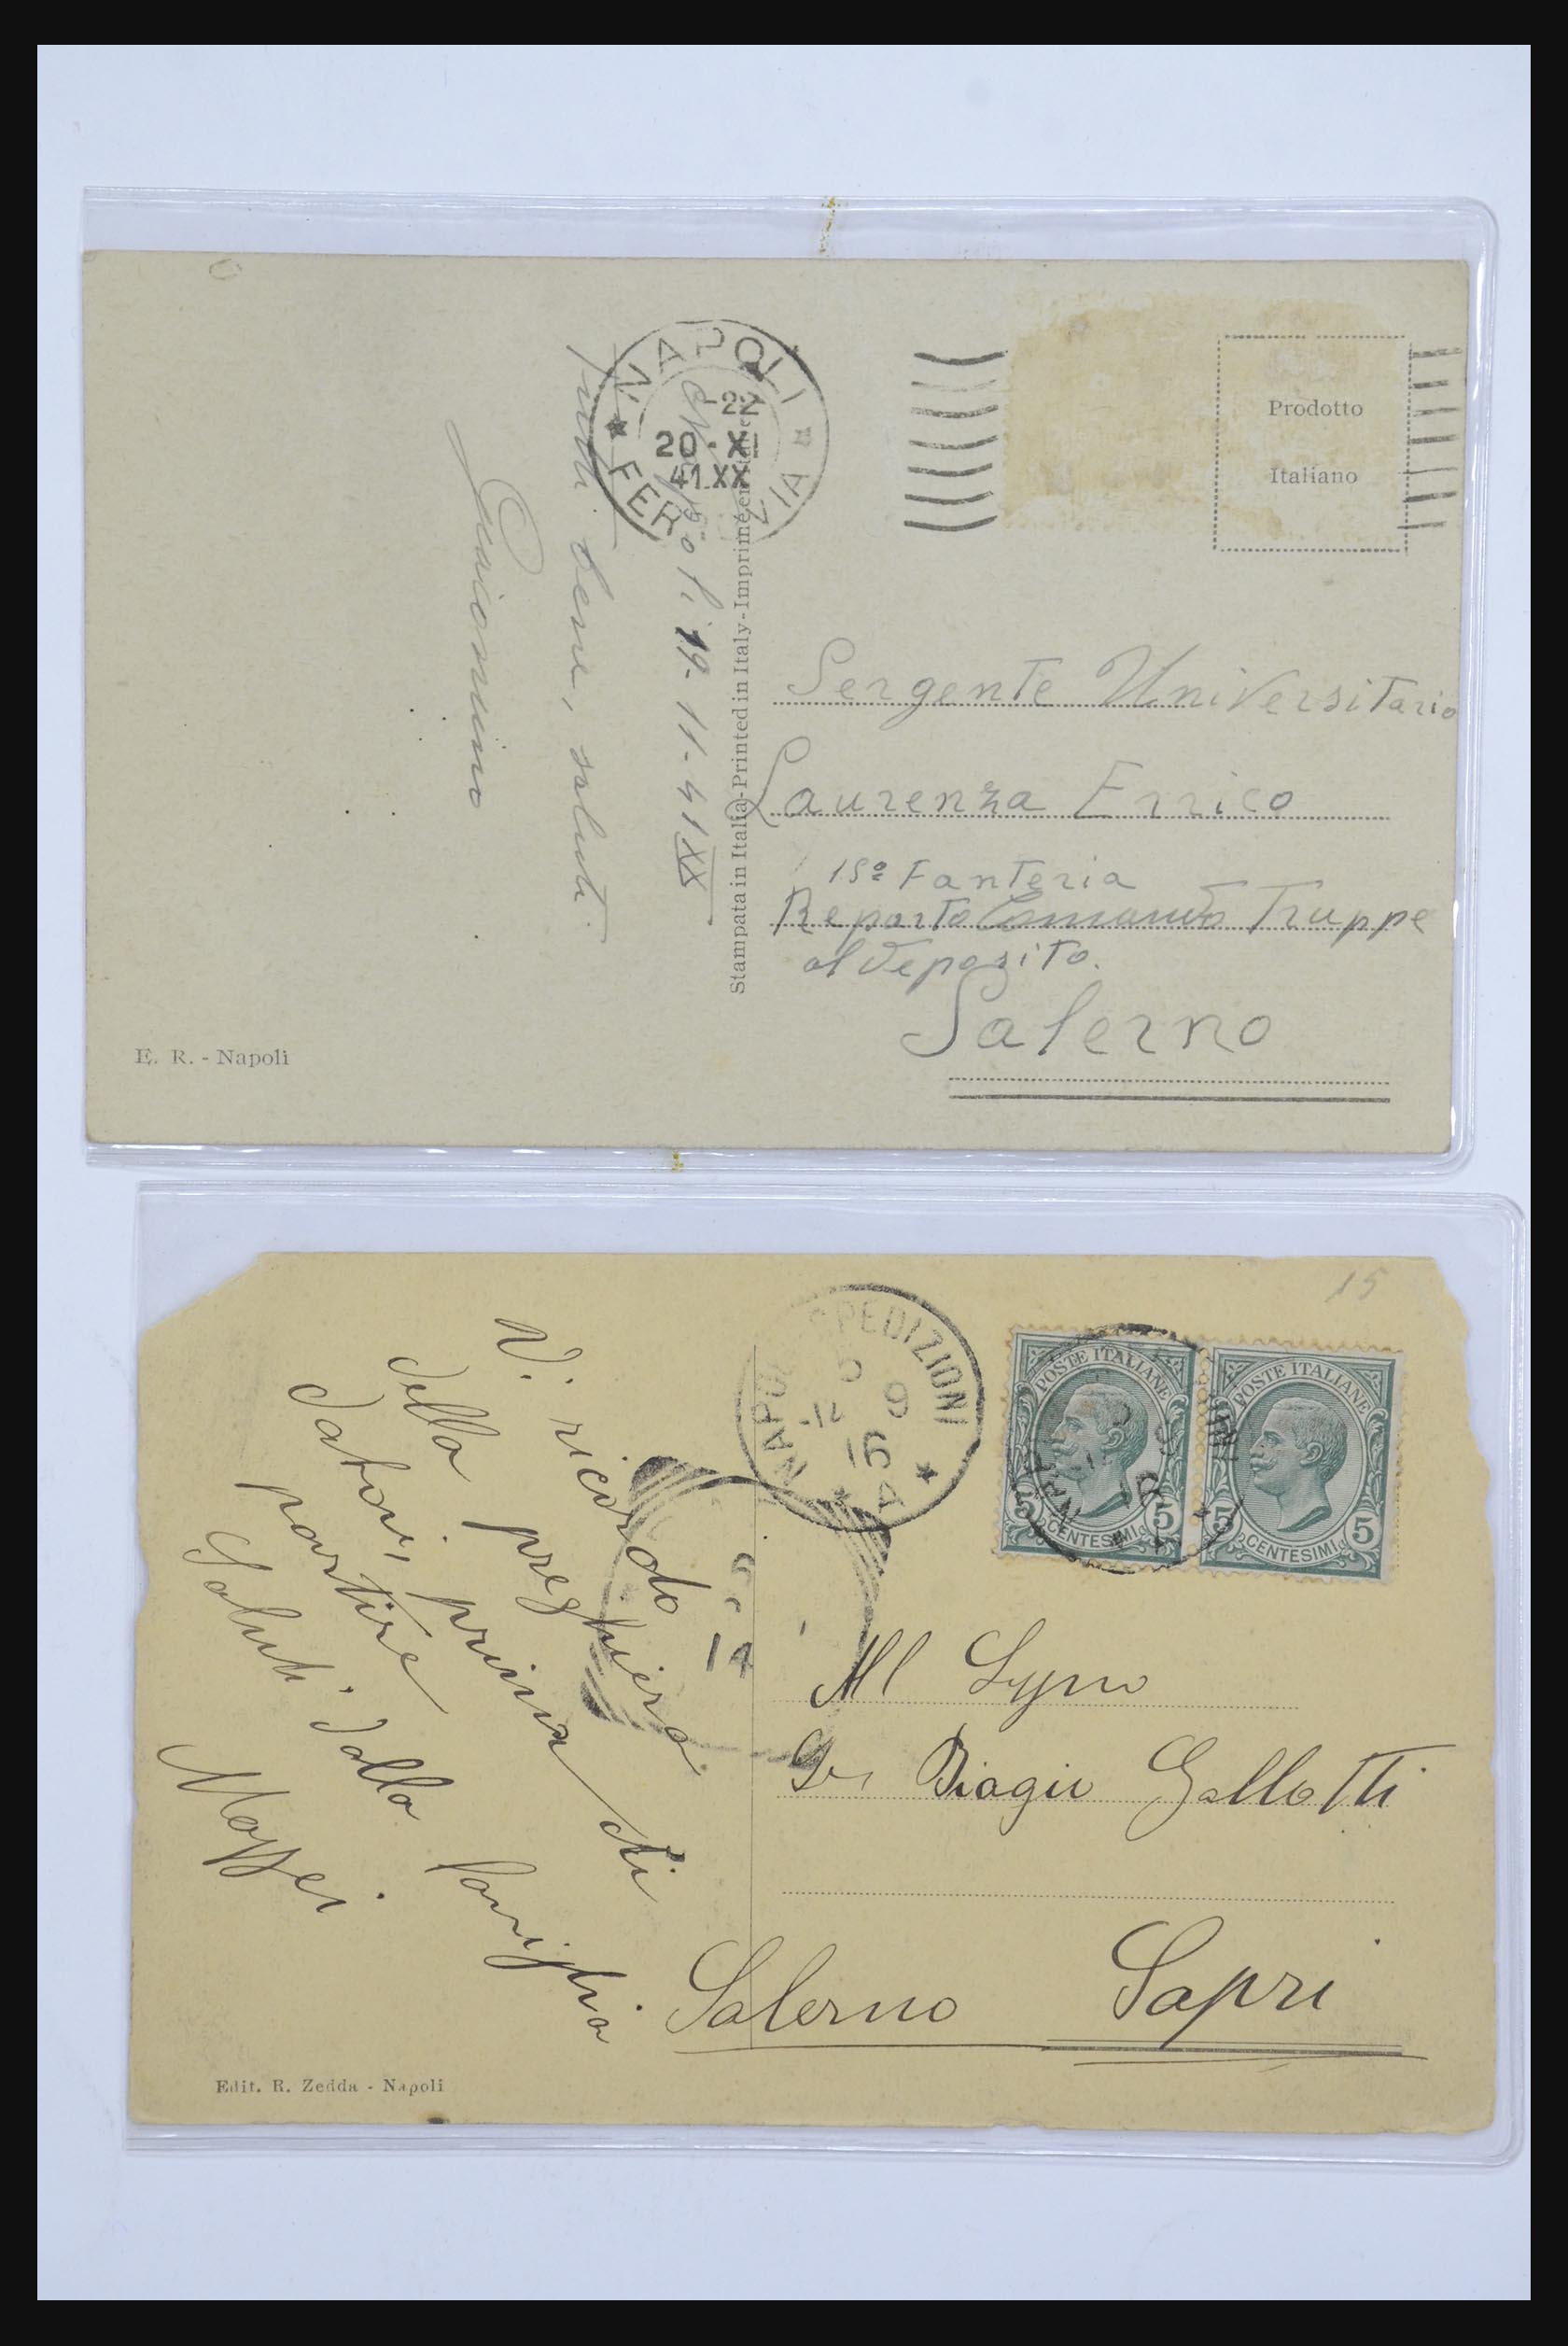 NAPOLI
-22
20·XI
41.XX
FER ZIA
Prodotto
Italiano
Napoli 19-11-41 XX
Tutti bene, saluti.
Stampata in Italia-Printed in Italy-Imprimé en Italie
Sergente Universitario
Laurenza Errico
15º Fanteria
Reparto Comando Truppe
al deposito.
Salerno
E. R. - Napoli
15
NAPOLI SPEDIZIONI
-12 9
16
POSTE ITALIANE
5 CENTESIMI 5
POSTE ITALIANE
5 CENTESIMI 5
14
Vi ricordo
della preghiera
datovi, prima di
partire
Saluti dalla famiglia
Maffei
Al Sigr
Dr Biagio Gallotti
Salerno Sapri
Edit. R. Zedda - Napoli